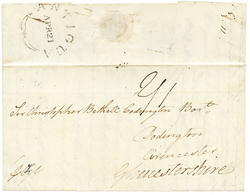 ANTIGUA
APR 21
Sir Christopher Bethell Codrington Bart
Codington
Cirencester
Gloucestershire